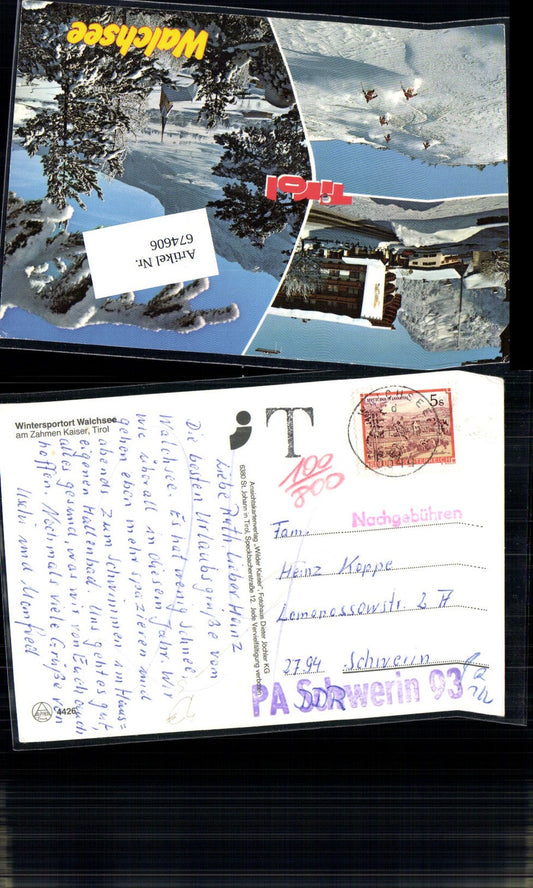 Walchsee
Tirol
Artikel Nr.
674606
Wintersportort Walchsee
am Zahmen Kaiser, Tirol
Liebe Ruth, lieber Heinz
Die besten Urlaubsgrüße vom
Walchsee. Es hat wenig Schnee,
wie überall in diesem Jahr. Wir
gehen eben mehr spazieren und
abends zum Schwimmen im Haus=
eigenen Hallenbad. Uns geht es gut,
alles gesund, was wir von Euch auch
hoffen. Nochmals viele Grüße von
Uschi und Manfred
4426
Ansichtskartenverlag „Wilder Kaiser", Fotohaus Dieter Jöchler KG
6380 St. Johann in Tirol, Speckbacherstraße 12. Jede Vervielfältigung verboten
T
100
800
5s
Nachgebühren
Fam.
Heinz Koppe
Lomonossowstr. 2
2794 Schwerin
DDR
PA Schwerin 93